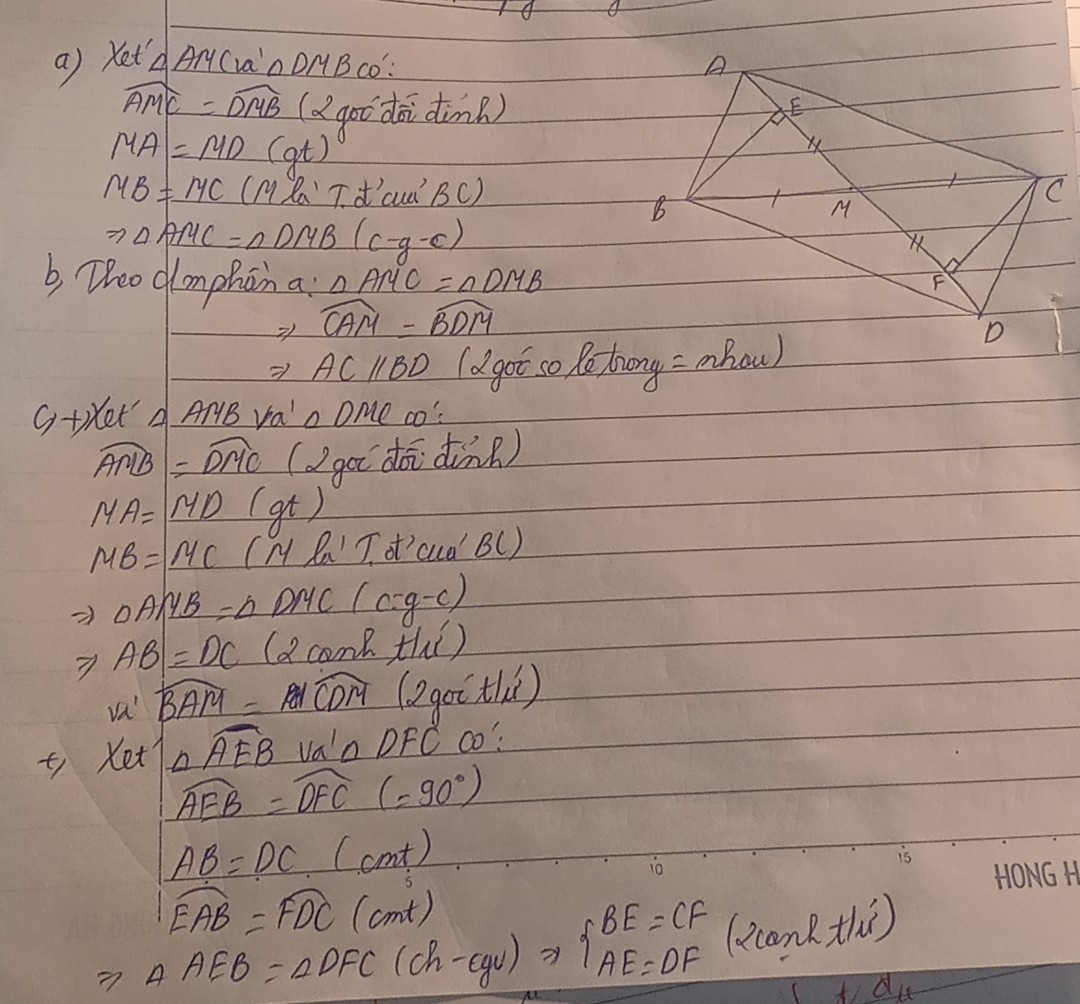 a) Xét △ AMC và △ DMB có:
AMC = DMB (2 góc đối đỉnh)
MA = MD (gt)
MB = MC (M là T.đ' của BC)
=> △ AMC = △ DMB (c-g-c)
b, Theo cm phần a: △ AMC = △ DMB
=> CAM = BDM
=> AC // BD (2 góc so le trong = nhau)
c, +, Xét △ AMB và △ DMC có:
AMB = DMC (2 góc đối đỉnh)
MA = MD (gt)
MB = MC (M là T.đ' của BC)
=> △ AMB = △ DMC (c-g-c)
=> AB = DC (2 cạnh tứ)
và BAM = CDM (2 góc tứ)
+, Xét △ AEB và △ DFC có:
AEB = DFC (= 90°)
AB = DC (cmt)
EAB = FDC (cmt)
=> △ AEB = △ DFC (ch-cgv) => { BE = CF
AE = DF (2 cạnh tứ)
A
E
B
M
C
F
D
5
10
15
HONG H